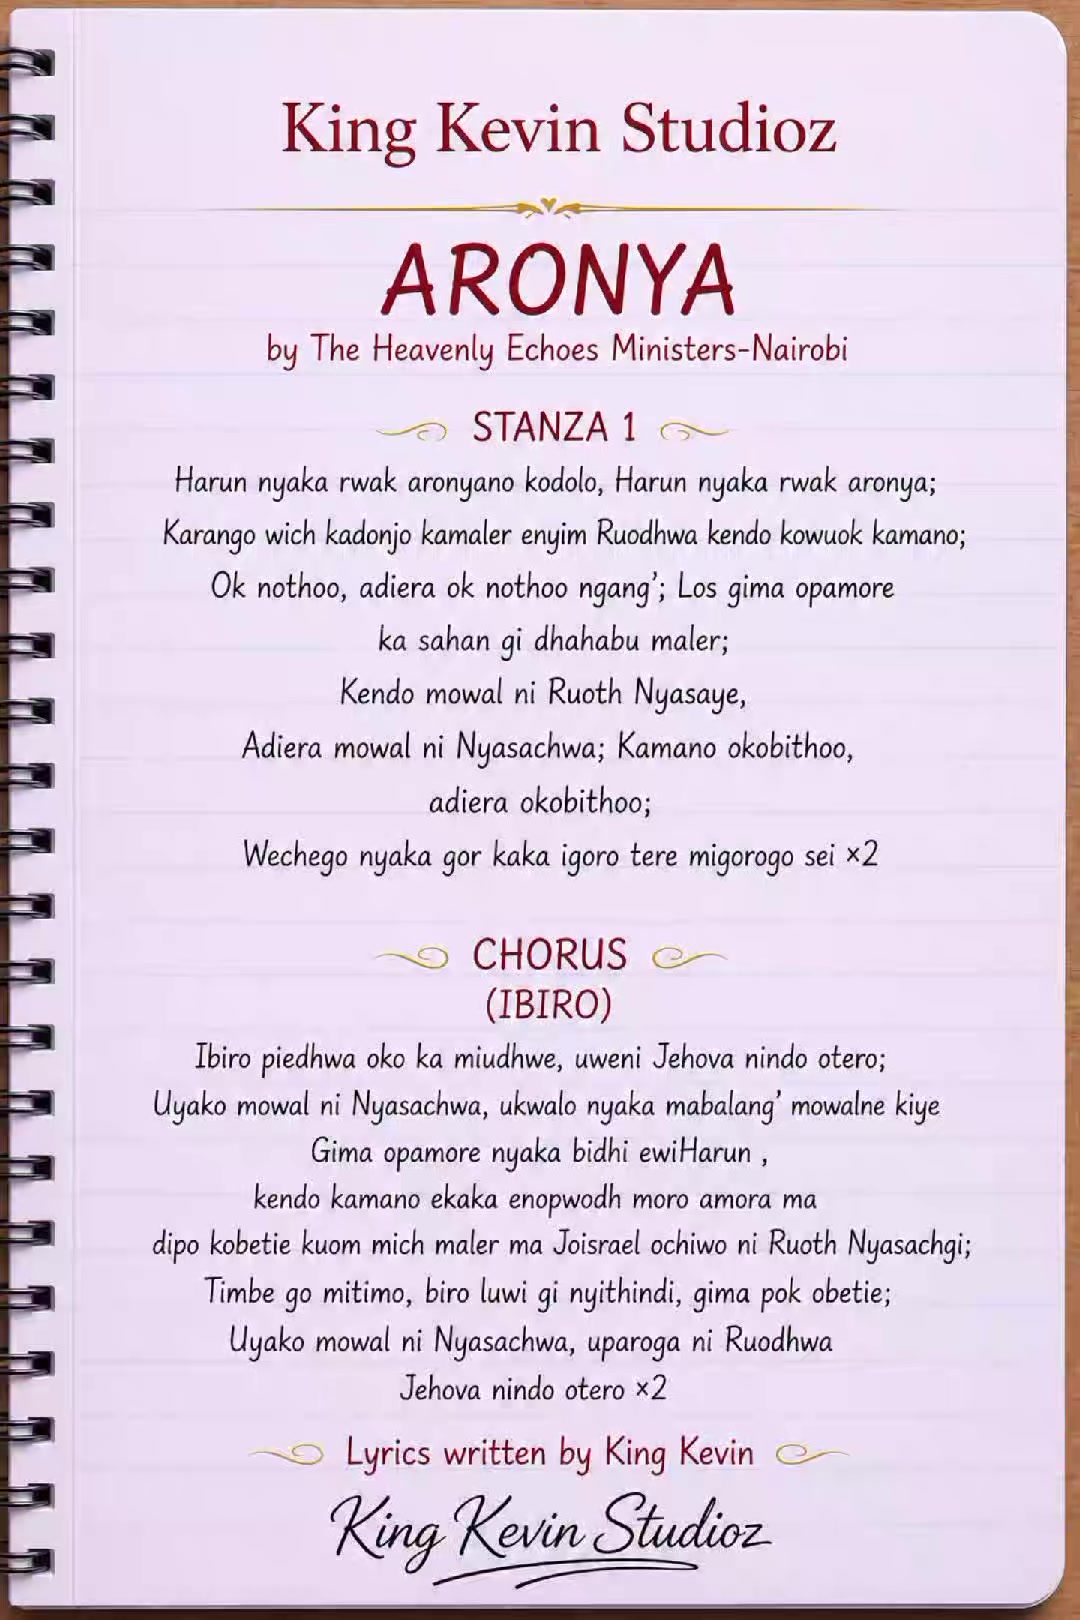 King Kevin Studioz
ARONYA
by The Heavenly Echoes Ministers-Nairobi
STANZA 1
Harun nyaka rwak aronyano kodolo, Harun nyaka rwak aronya;
Karango wich kadonjo kamaler enyim Ruodhwa kendo kowuok kamano;
Ok nothoo, adiera ok nothoo ngang’; Los gima opamore
ka sahan gi dhahabu maler;
Kendo mowal ni Ruoth Nyasaye,
Adiera mowal ni Nyasachwa; Kamano okobithoo,
adiera okobithoo;
Wechego nyaka gor kaka igoro tere migorogo sei ×2
CHORUS
(IBIRO)
Ibiro piedhwa oko ka miudhwe, uweni Jehova nindo otero;
Uyako mowal ni Nyasachwa, ukwalo nyaka mabalang’ mowalne kiye
Gima opamore nyaka bidhi ewiHarun ,
kendo kamano ekaka enopwodh moro amora ma
dipo kobetie kuom mich maler ma Joisrael ochiwo ni Ruoth Nyasachgi;
Timbe go mitimo, biro luwi gi nyithindi, gima pok obetie;
Uyako mowal ni Nyasachwa, uparoga ni Ruodhwa
Jehova nindo otero ×2
Lyrics written by King Kevin
King Kevin Studioz